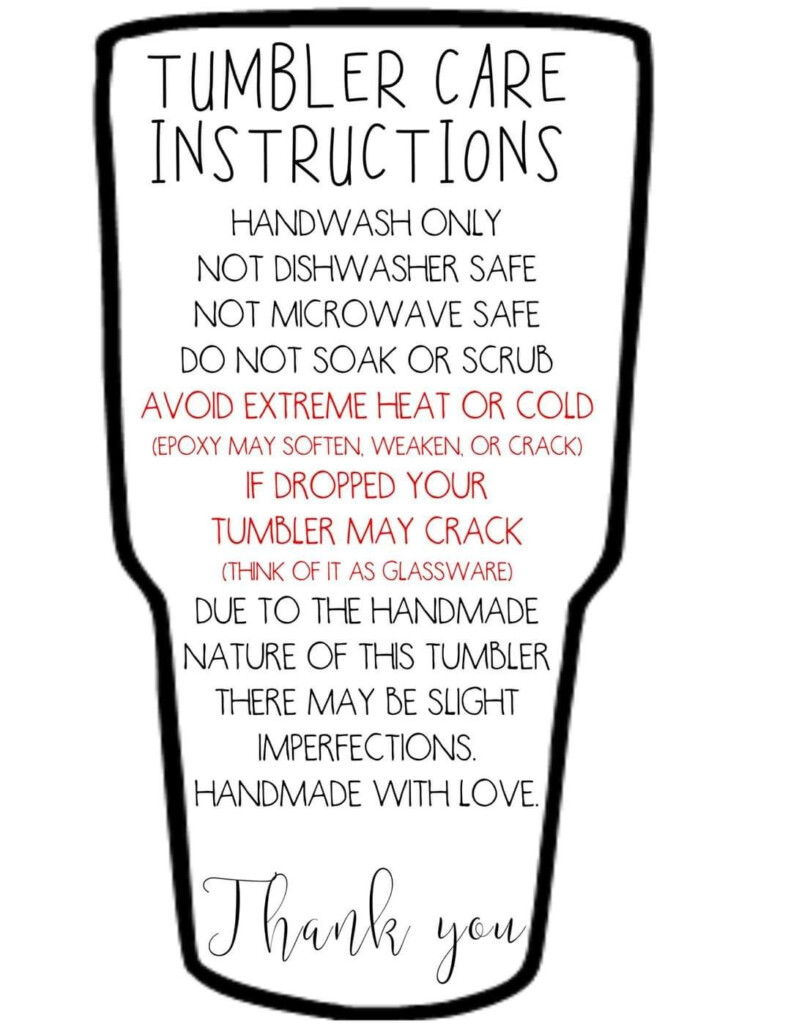 TUMBLER CARE
INSTRUCTIONS
HANDWASH ONLY
NOT DISHWASHER SAFE
NOT MICROWAVE SAFE
DO NOT SOAK OR SCRUB
AVOID EXTREME HEAT OR COLD
(EPOXY MAY SOFTEN, WEAKEN, OR CRACK)
IF DROPPED YOUR
TUMBLER MAY CRACK
(THINK OF IT AS GLASSWARE)
DUE TO THE HANDMADE
NATURE OF THIS TUMBLER
THERE MAY BE SLIGHT
IMPERFECTIONS.
HANDMADE WITH LOVE.
Thank you